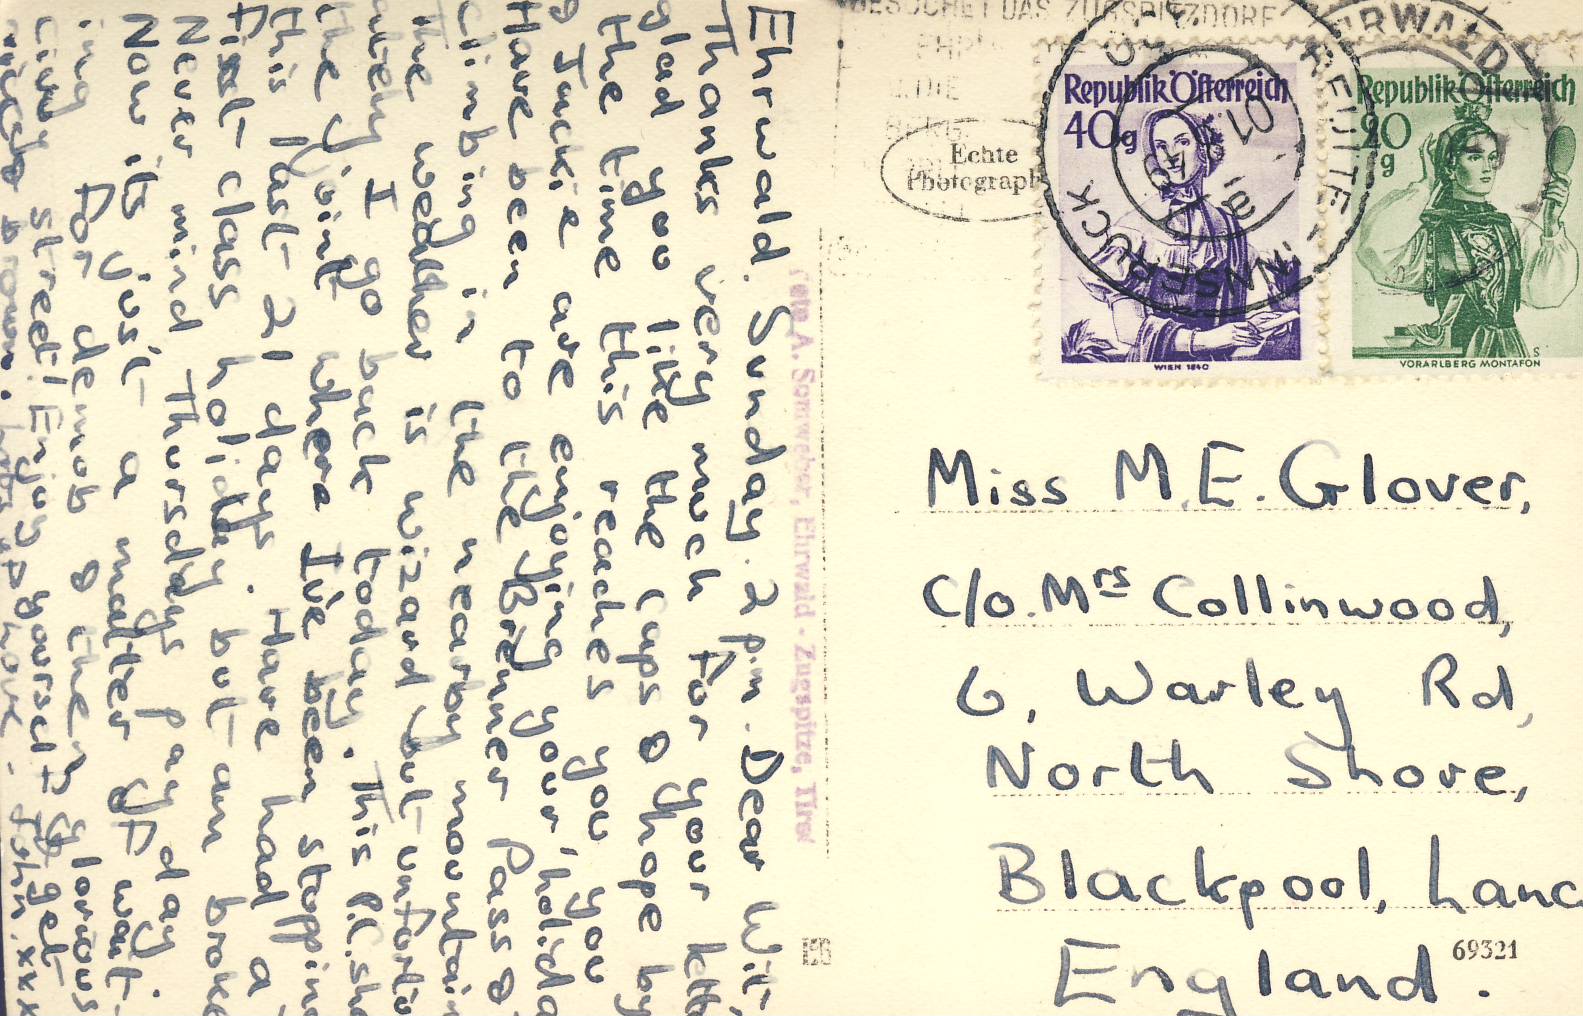 Ehrwald. Sunday. 2 p.m. Dear Wit,
Thanks very much for your lett
glad you like the cups & hope by
the time this reaches you you
& Jackie are enjoying your holida
Have been to the Brenner Pass &
climbing in the nearby mountain
The weather is wizard but unfortu
ately I go back today. This P.C. sh
the joint where I've been stoppin
this last 21 days. Have had a
first-class holiday but am broke
Never mind Thursdays pay day.
Now its just a matter of wait-
ing for demob & then glorious
civvy street! Enjoy yourself & get
brown. John. xxx
BESUCHET DAS ZUGSPITZDORF
EHRWALD
Echte
Photograph
REUTTE - INNSBRUCK
Republik Österreich
40g
WIEN 1840
Republik Österreich
20
g
VORARLBERG MONTAFON
A. Somweber, Ehrwald - Zugspitze, Tirol
Miss M.E. Glover,
c/o. Mrs Collinwood,
6, Warley Rd,
North Shore,
Blackpool, Lanc
England.
69321